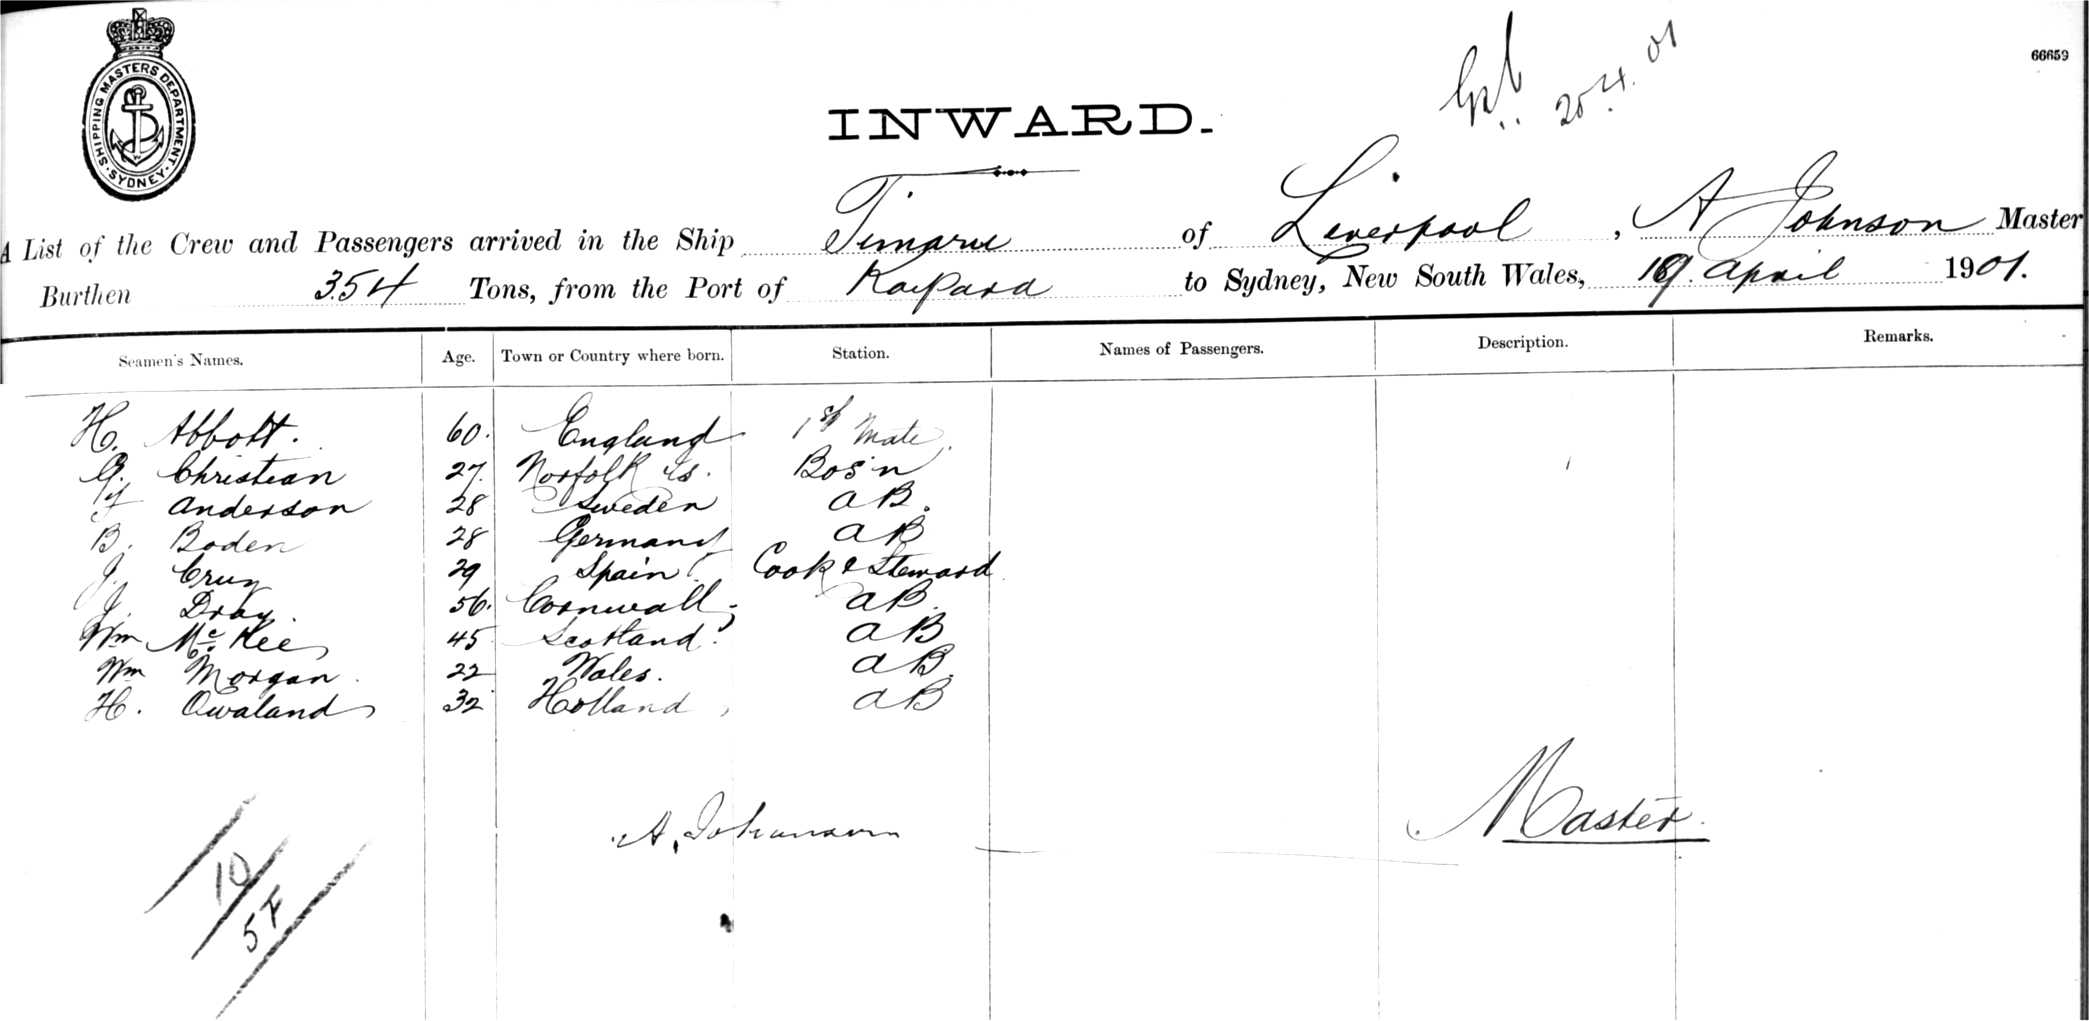 66659
20.4.01
SHIPPING MASTERS DEPARTMENT. SYDNEY.
INWARD.
A List of the Crew and Passengers arrived in the Ship Timaru of Liverpool, A Johnson Master
Burthen 354 Tons, from the Port of Kaipara to Sydney, New South Wales, 19. April 1901.
Seamen's Names. Age. Town or Country where born. Station. Names of Passengers. Description. Remarks.
H. Abbott. 60. England 1st Mate
G. Christian 27. Norfolk Is. Bos'n
Anderson 28 Sweden AB.
B. Boden 28 Germany AB
J. Cruz 29 Spain Cook & Steward
J. Dray. 56. Cornwall AB.
Wm McKee 45 Scotland. AB
Wm Morgan. 22 Wales. AB.
H. Owaland 32 Holland AB
A. Johanson Master.
10
5F